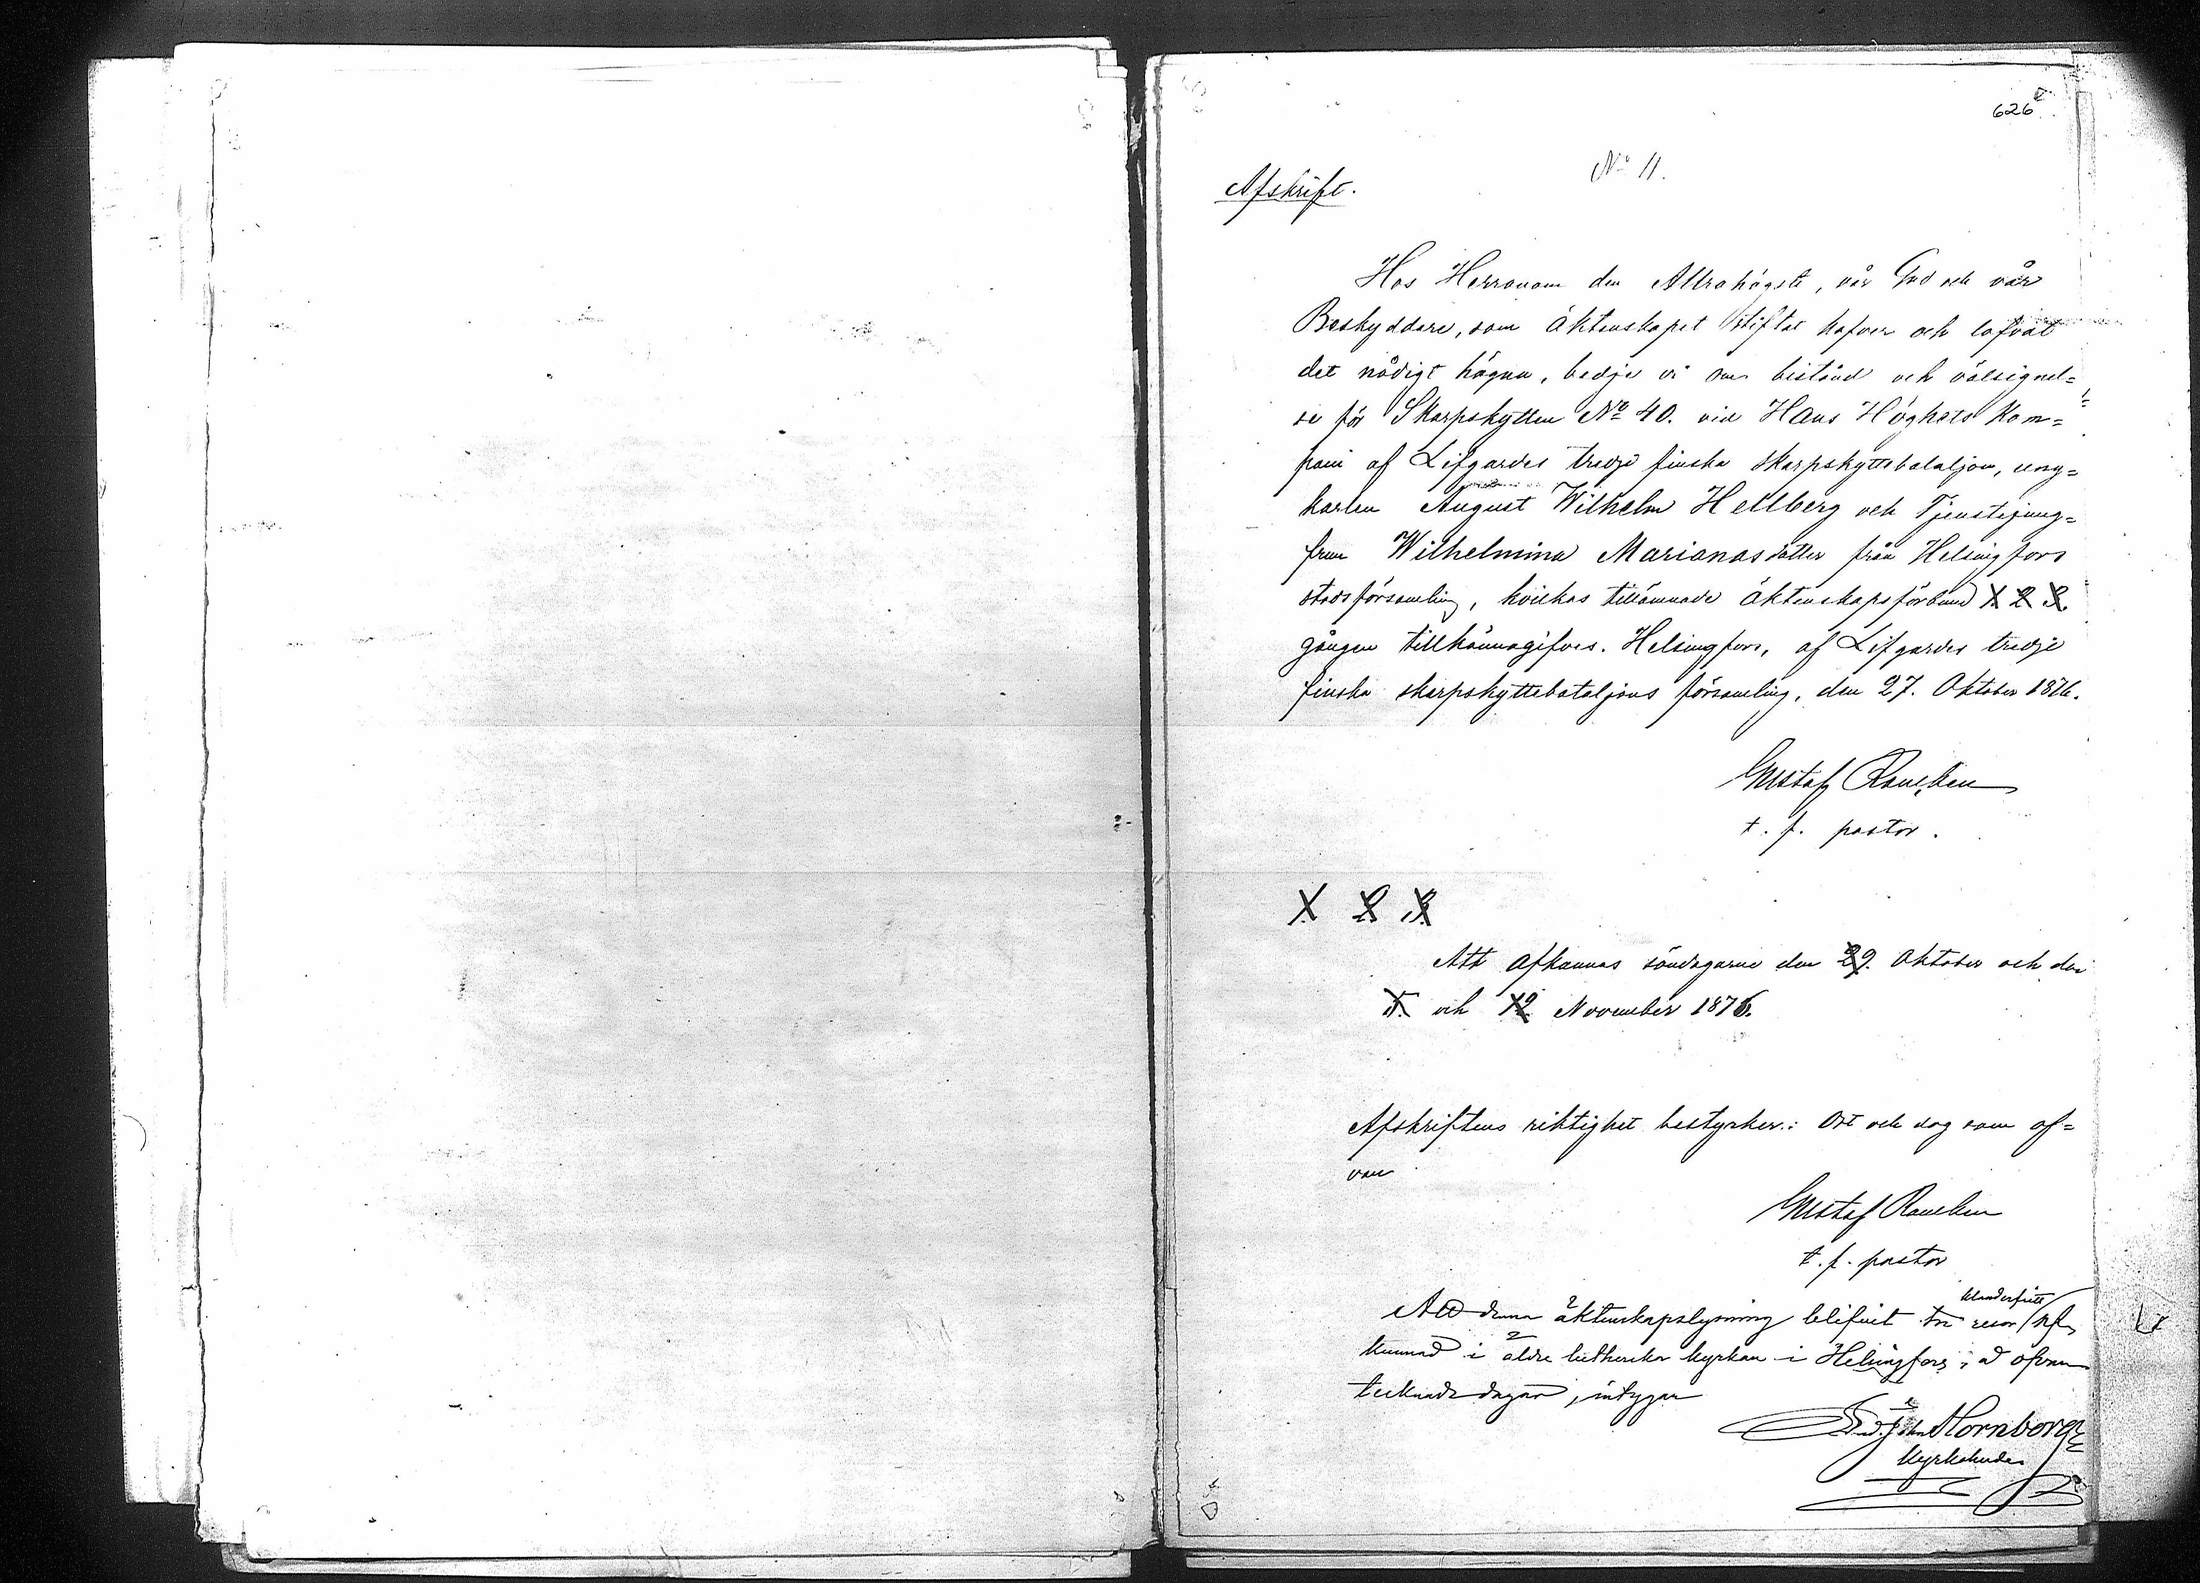 626
No 11.
Afskrift.
Hos Herranom den Allrahögste, vår Gud och vår
Beskyddare, som äktenskapet stiftat hafver och lofvat
det nådigt hägna, bedje vi om bistånd och välsignel=
se för Skarpskytten No 40. vid Hans Höghets Kom=
pani af Lifgardes tredje finska skarpskyttebataljon, ung=
karlen August Wilhelm Hellberg och Tjenstejung=
frun Wilhelmina Marianasdotter från Helsingfors
stadsförsamling, hvilkas tillämnade äktenskapsförbund 1. 2. 3.
gången tillkännagifves. Helsingfors, af Lifgardes tredje
finska skarpskyttebataljons församling, den 27. Oktober 1876.
Gustaf
t. f. pastor.
1. 2. 3.
Att afkunnas söndagarne den 29. Oktober och den
5. och 12 November 1876.
Afskriftens riktighet bestyrker: Ort och dag som of=
van
Gustaf
t. f. pastor
klanderfritt
Att denna äktenskapslysning blifvit tre resor / af
kunnad i äldre lutherska kyrkan i Helsingfors, å ofvan
tecknade dagar, intygar
Hornborg